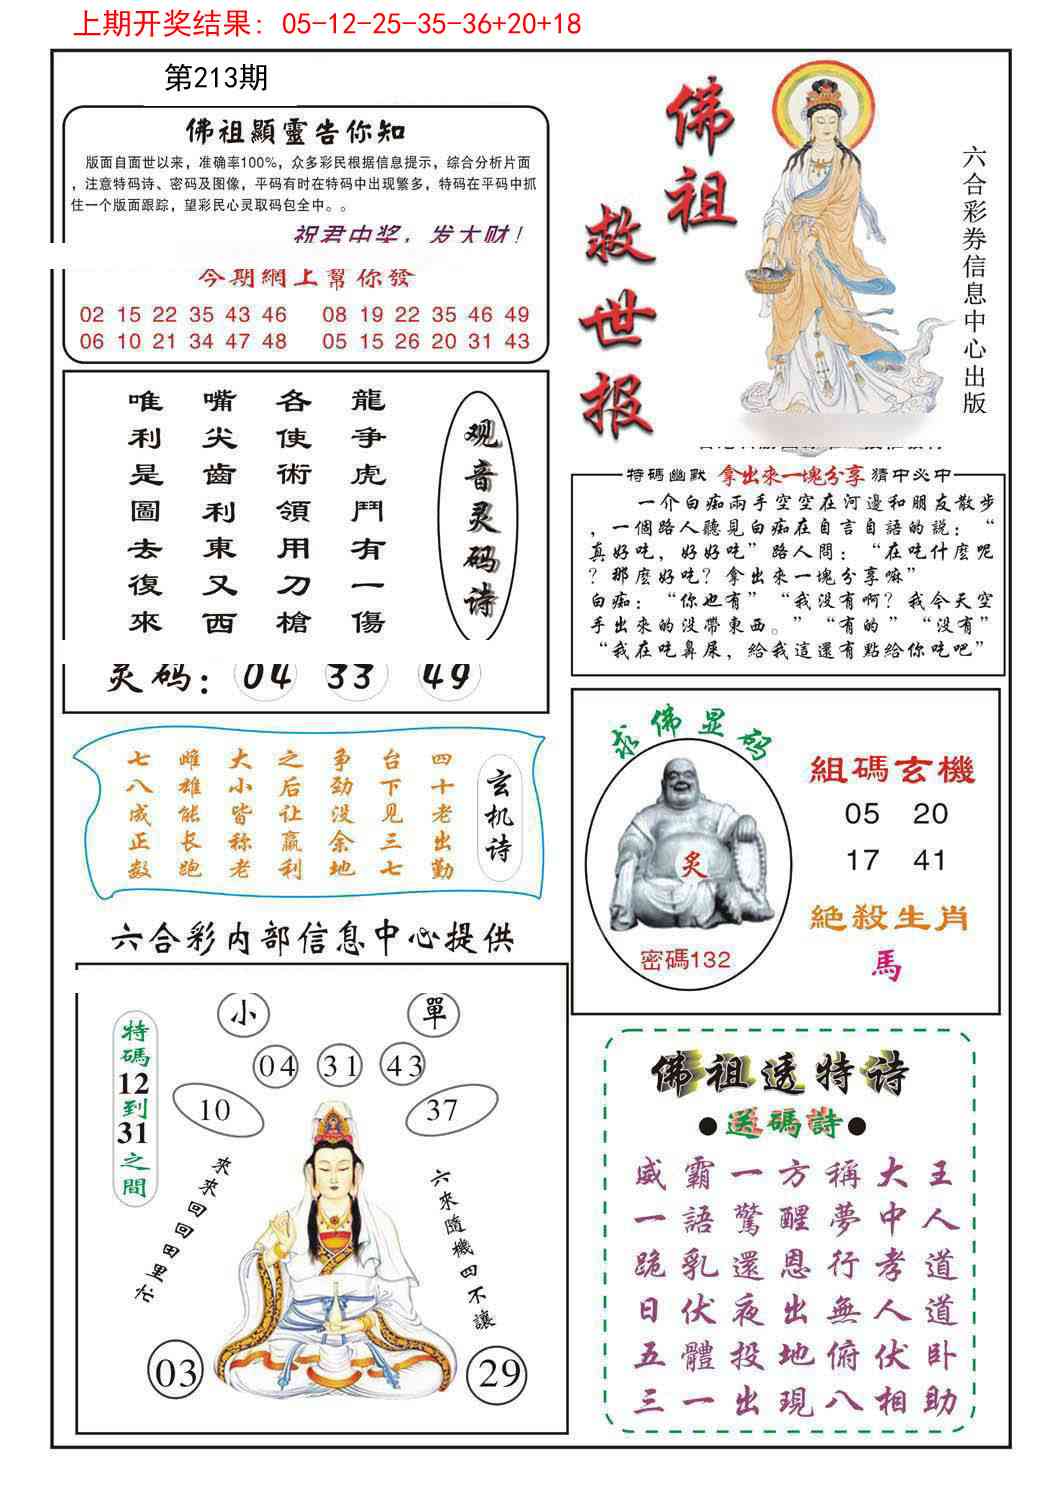 上期开奖结果：05-12-25-35-36+20+18
第213期
佛祖顯靈告你知
版面自面世以来，准确率100%，众多彩民根据信息提示，综合分析片面
，注意特码诗、密码及图像，平码有时在特码中出现繁多，特码在平码中抓
住一个版面跟踪，望彩民心灵取码包全中。。
祝君中奖，发大财！
今期網上幫你發
02 15 22 35 43 46 08 19 22 35 46 49
06 10 21 34 47 48 05 15 26 20 31 43
佛祖
救世报
六合彩券信息中心出版
观音灵码诗
龍争虎鬥有一傷
各使術領用刀槍
嘴尖齒利東又西
唯利是圖去復來
灵码：04 33 49
特碼幽默 拿出來一塊分享 猜中必中
一介白痴兩手空空在河邊和朋友散步
，一個路人聽見白痴在自言自語的説：“
真好吃，好好吃”路人問：“在吃什麼呢
？那麼好吃？拿出來一塊分享嘛”
白痴：“你也有”“我没有啊？我今天空
手出來的没帶東西。”“有的”“没有”
“我在吃鼻屎，給我這還有點給你吃吧”
玄机诗
四十老出勤
台下见三七
争劲没余地
之后让赢利
大小皆称老
雌雄能长跑
七八成正数
求佛显码
炙
密碼132
組碼玄機
05 20
17 41
絕殺生肖
馬
六合彩内部信息中心提供
特碼12到31之間
小 單
04 31 43
10 37
來來回回田里忙
六來隨機四不讓
03 29
佛祖透特诗
●送碼詩●
威霸一方稱大王
一語驚醒夢中人
跪乳還恩行孝道
日伏夜出無人道
五體投地俯伏卧
三一出現八相助